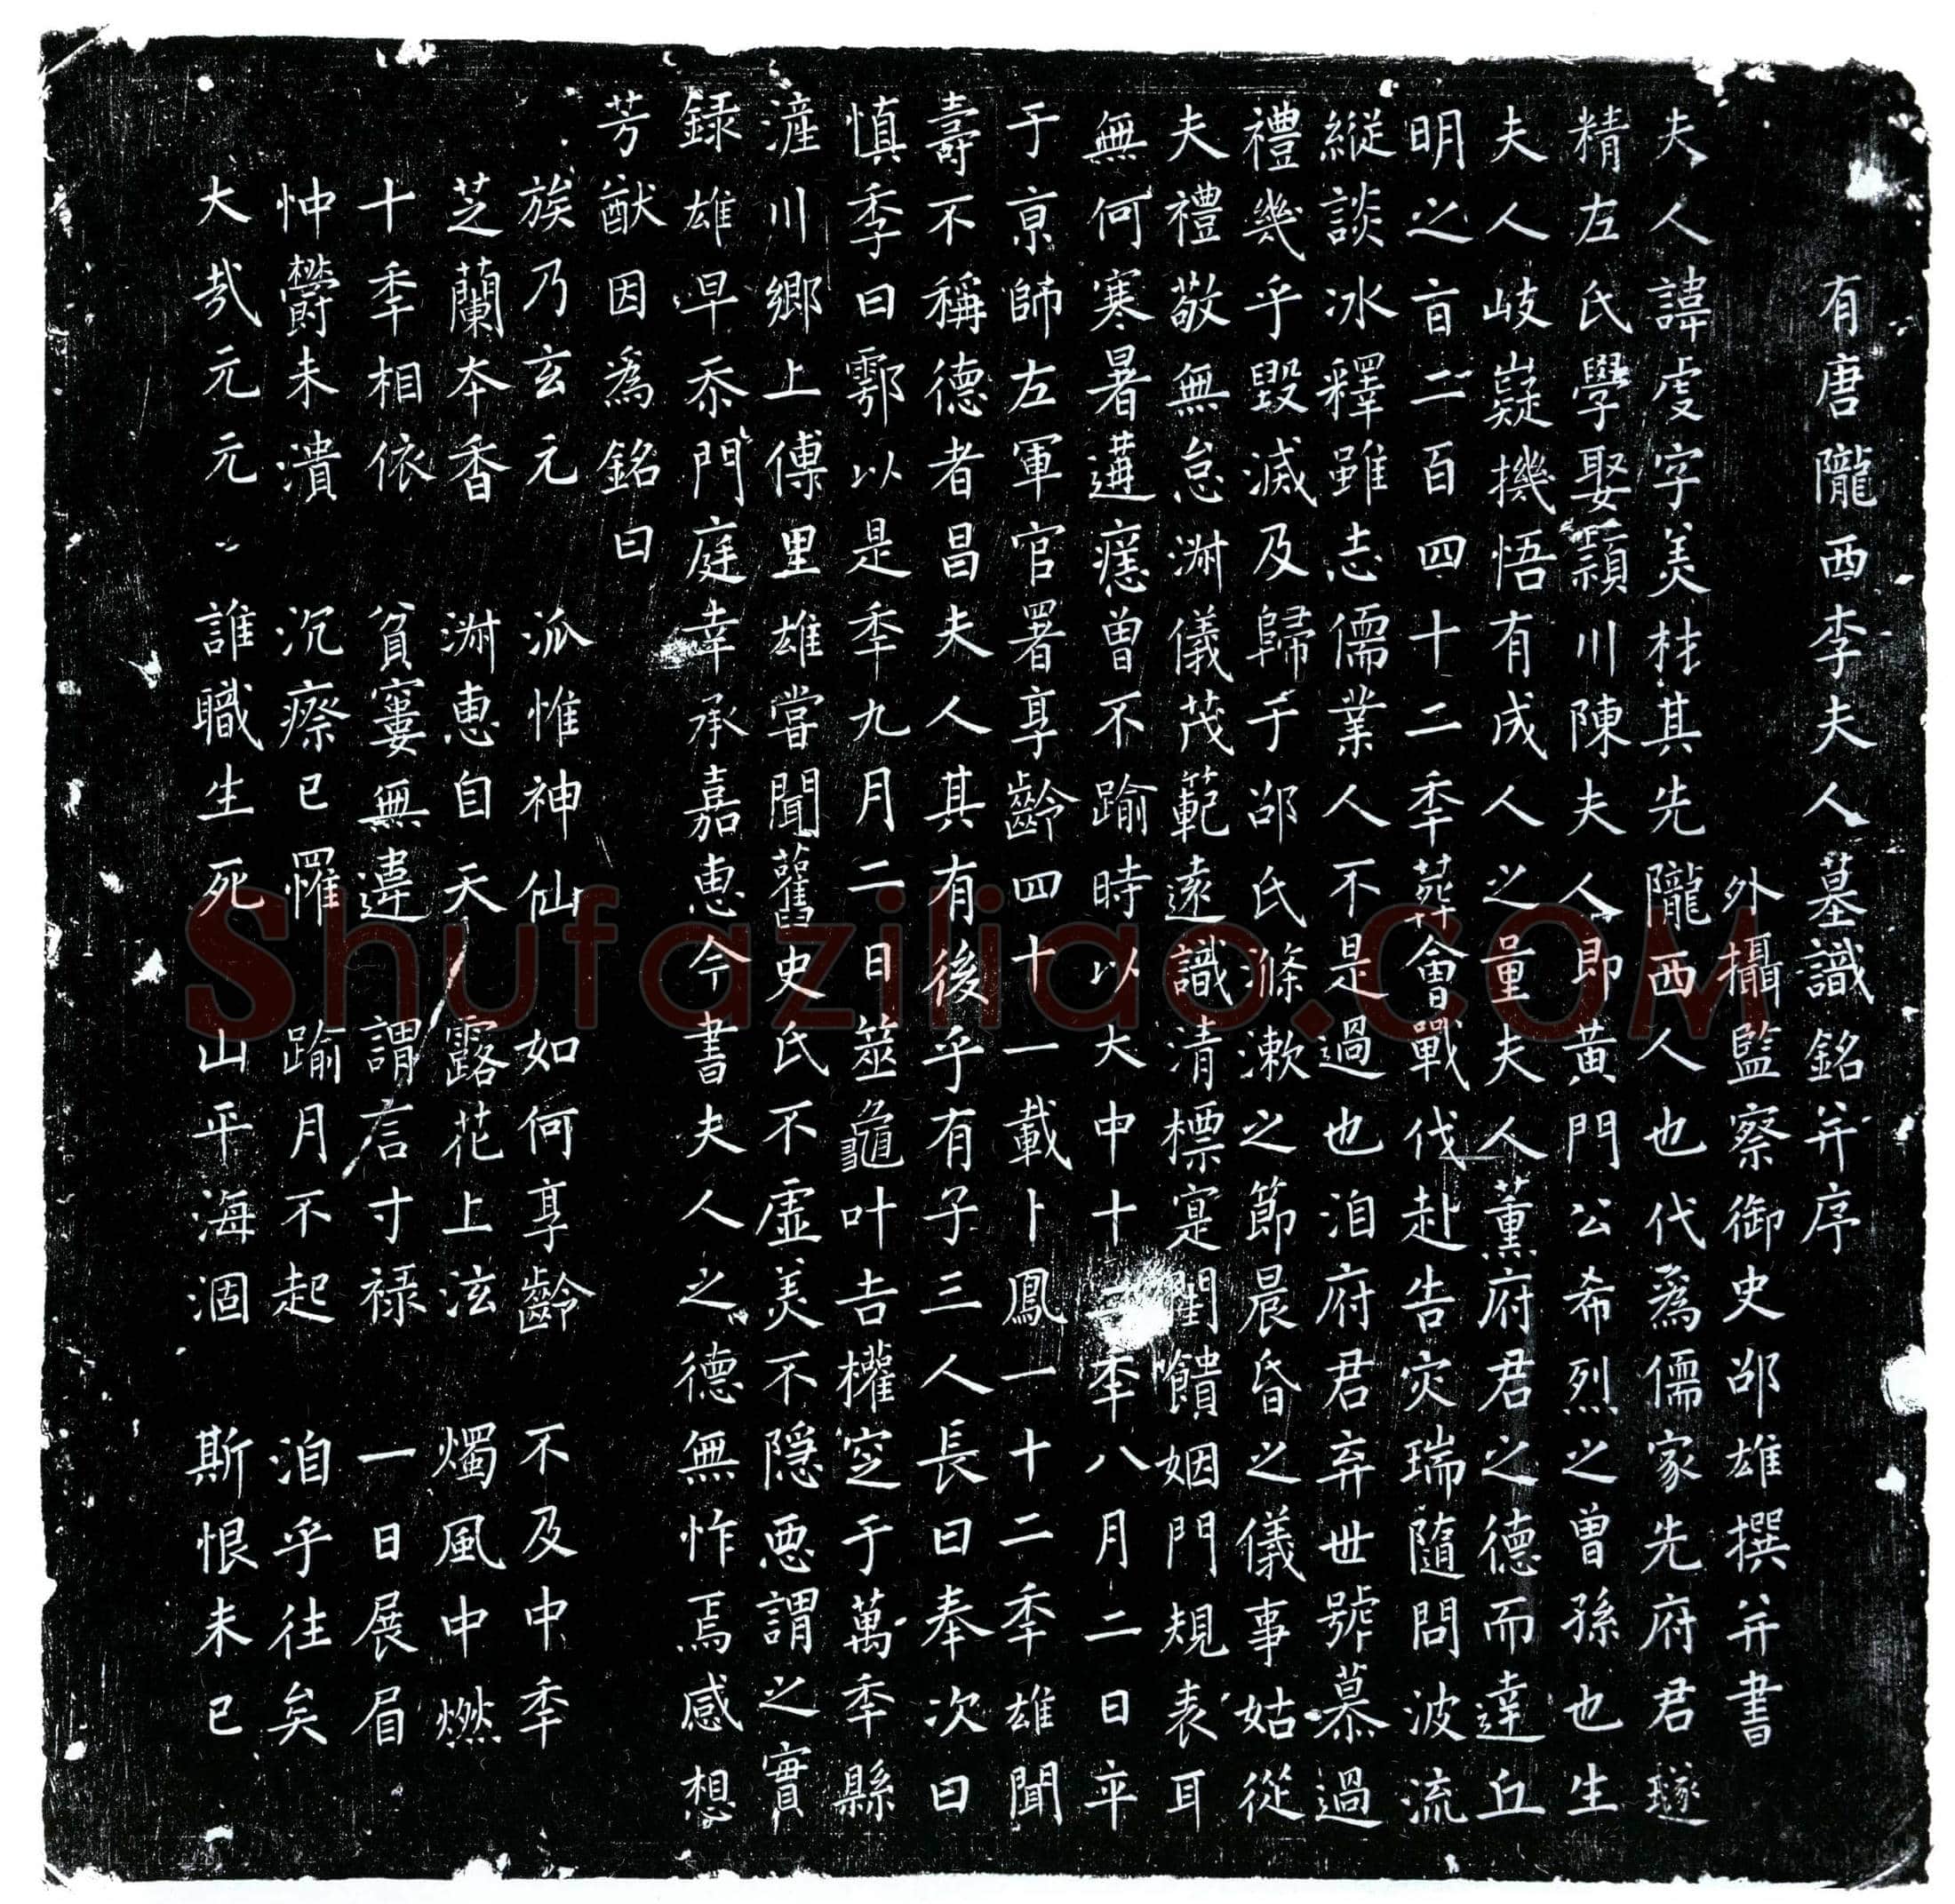 有唐隴西李夫人墓識銘并序
外攝監察御史邵雄撰并書
夫人諱虔字美枝其先隴西人也代爲儒家先府君璲
精左氏學娶潁川陳夫人人即黄門公希烈之曾孫也生
夫人岐嶷機悟有成人之量夫人薰府君之德而達丘
明之旨二百四十二秊葬會戰伐赴告灾瑞隨問波流
縱談冰釋雖志儒業人不是過也洎府君弃世號慕過
禮幾乎毀滅及歸于邵氏滌漱之節晨昏之儀事姑從
夫禮敬無怠淋儀茂範遠識清標寔閨饋姻門規表耳
無何寒暑遘瘧曾不踰時以大中十二秊八月二日卒
于京師左軍官署享齡四十一載卜鳳一十二秊雄聞
壽不稱德者昌夫人其有後乎有子三人長曰奉次曰
慎季曰鄠以是秊九月二日筮龜叶吉權窆于萬秊縣
滻川鄉上傅里雄嘗聞舊史氏不虛美不隠惡謂之實
録雄早忝門庭幸承嘉惠今書夫人之德無怍焉感想
芳猷因爲銘曰
族乃玄元 派惟神仙 如何享齡 不及中秊
芝蘭夲香 淋惠自天 露花上泫 燭風中燃
十秊相依 貧窶無違 謂言寸禄 一日展眉
忡欝未潰 沉瘵已罹 踰月不起 洎乎往矣
大哉元元 誰職生死 山平海涸 斯恨未已
Shufaziliao.COM